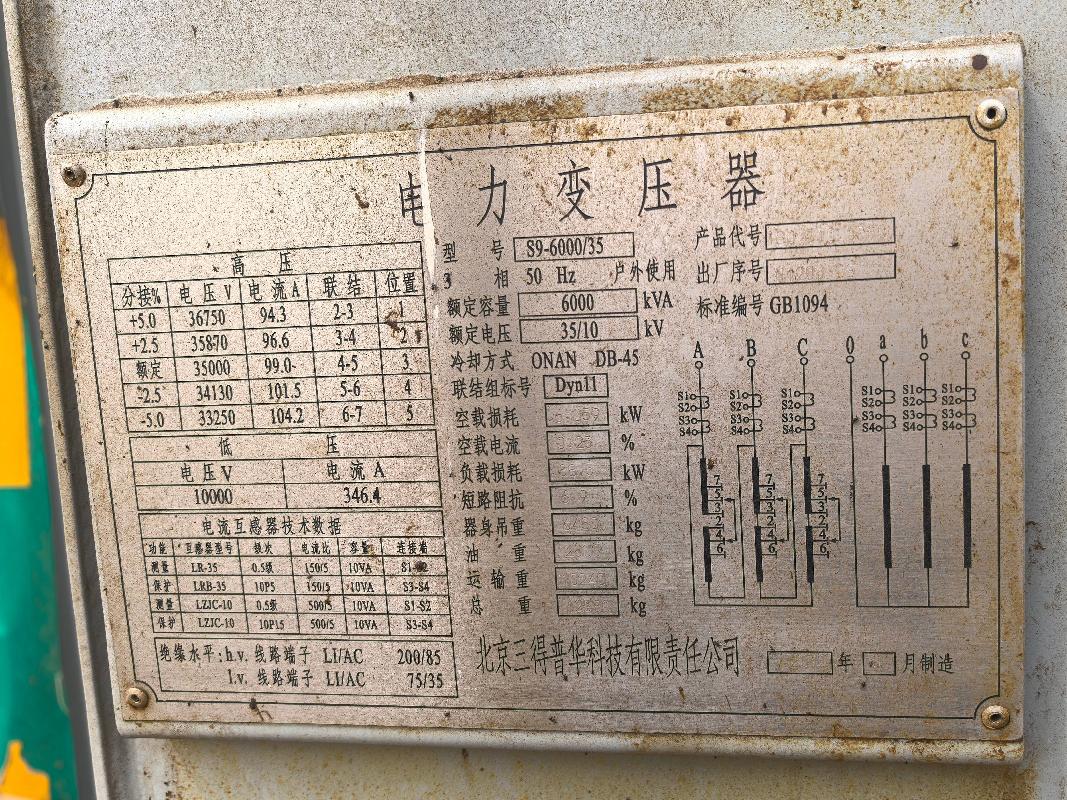 电力变压器
型 号 S9-6000/35 产品代号
3 相 50 Hz 户外使用 出厂序号
额定容量 6000 kVA 标准编号 GB1094
额定电压 35/10 kV
冷却方式 ONAN DB-45
联结组标号 Dyn11
空载损耗 kW
空载电流 %
负载损耗 kW
短路阻抗 %
器身吊重 kg
油 重 kg
运输重 kg
总 重 kg
高 压
分接% 电压V 电流A 联结 位置
+5.0 36750 94.3 2-3 1
+2.5 35870 96.6 3-4 2
额定 35000 99.0 4-5 3
-2.5 34130 101.5 5-6 4
-5.0 33250 104.2 6-7 5
低 压
电压V 电流A
10000 346.4
电流互感器技术数据
功能 互感器型号 级次 电流比 容量 连接端
测量 LR-35 0.5级 150/5 10VA S1-S2
保护 LRB-35 10P5 150/5 10VA S3-S4
测量 LZJC-10 0.5级 500/5 10VA S1-S2
保护 LZJC-10 10P15 500/5 10VA S3-S4
绝缘水平:h.v. 线路端子 LI/AC 200/85
l.v. 线路端子 LI/AC 75/35
A B C 0 a b c
S1 S1 S1 S1 S1 S1
S2 S2 S2 S2 S2 S2
S3 S3 S3 S3 S3 S3
S4 S4 S4 S4 S4 S4
7 7 7
5 5 5
3 3 3
2 2 2
4 4 4
6 6 6
北京三得普华科技有限责任公司 年 月制造